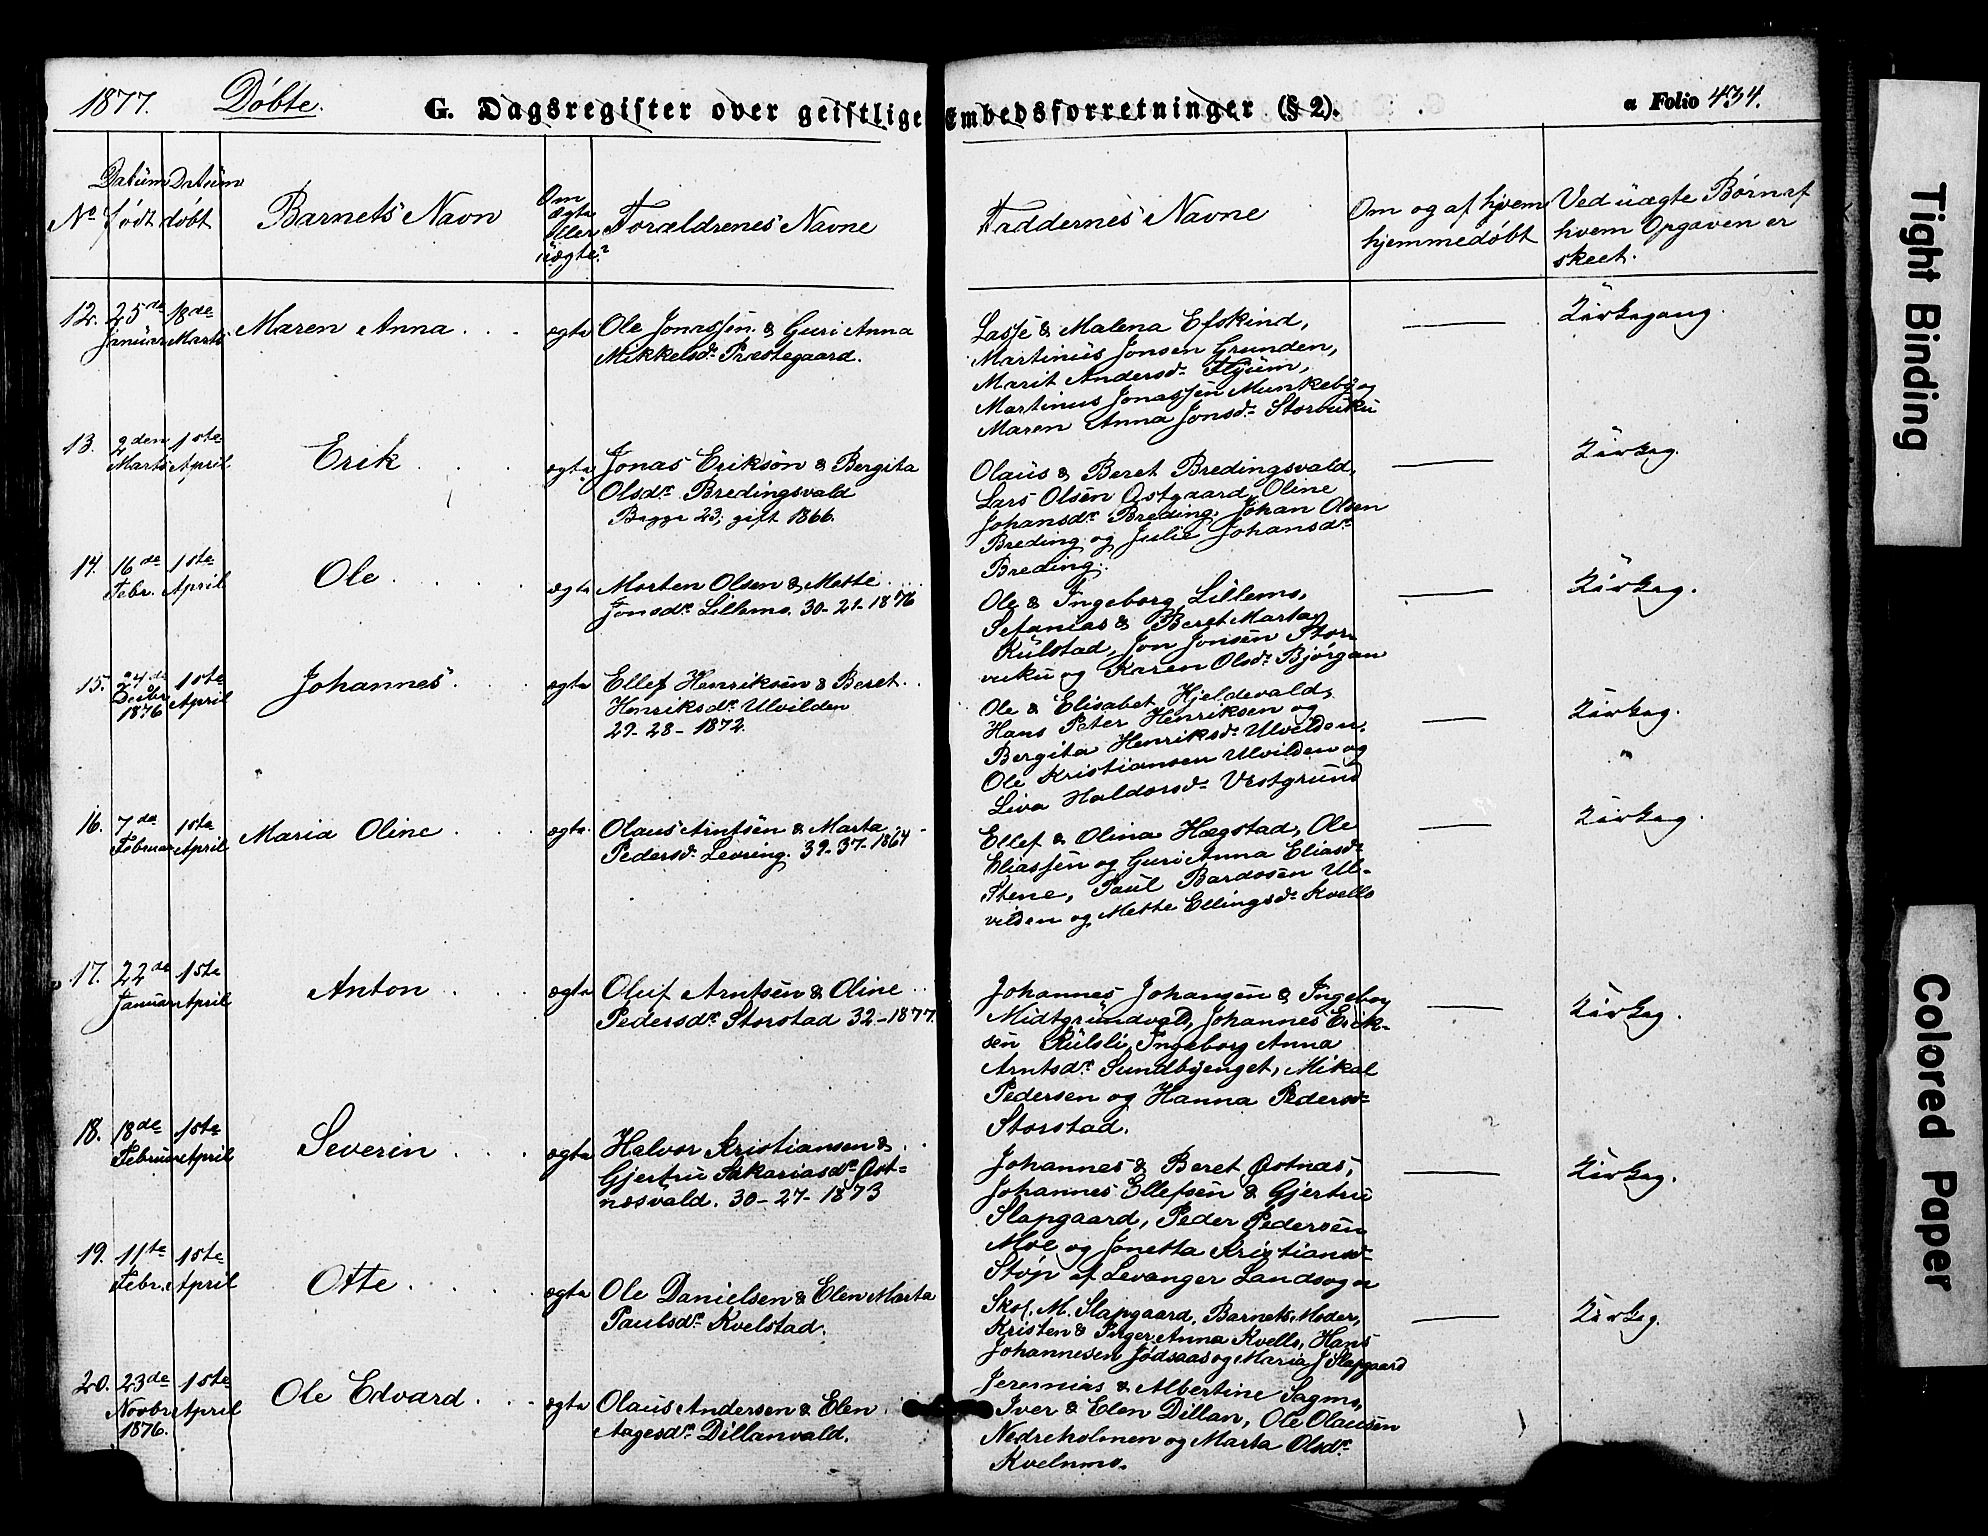 1877. Døbte.
G. Dagsregister over geistlige Embedsforretninger (§ 2).
a Folio 434.
No
Datum født
Datum døbt
Barnets Navn
Om ægte eller uægte
Forældrenes Navne
Faddernes Navne
Om og af hvem hjemmedøbt
Ved uægte Børn af hvem Opgaven er skeet.
12. 25de Januar 18de Marts Maren Anna ægte
Ole Jonassen & Guri Anna
Mikkelsdr Præstegaard.
Lasse & Malena Efskind,
Martinus Jonsen Grunden,
Marit Andersdr Flyum,
Martinus Jonassen Munkeby og
Maren Anna Jonsdr Storvuku
Kirkegang.
13. 2den Marts 1ste April Erik ægte
Jonas Erikson & Bergita
Olsdr Bredingsvald
Begge 23; gift 1866.
Olaus & Beret Bredingsvald,
Lars Olsen Ostgaard, Oline
Johansdr Breding, Johan Olsen
Breding og Julie Johansdr
Breding.
Kirkeg.
14. 16de Febr. 1ste April Ole ægte
Morten Olsen & Mette
Jonsdr Lillemo. 30-21-1876
Ole & Ingeborg Lillemo,
Sefanias & Beret Marta
Kulstad, Jon Jonsen Stor-
vuku og Karen Olsdr Bjørgan
Kirkeg.
15. 24de Decbr 1876 1ste April Johannes ægte
Ellef Henriksen & Beret
Henriksdr Ulvilden
29-28-1872.
Ole & Elisabet Hjeldevald,
Hans Peter Henriksen og
Bergita Henriksdr Ulvilden,
Ole Kristiansen Ulvilden og
Liva Haldorsdr Vestgrund
Kirkeg.
"
16. 7de Februar 1ste April Maria Oline ægte
Olaus Arntsen & Marta
Pedersdr Levring. 39-37-1864
Ellef & Olina Hægstad, Ole
Eliassen og Guri Anna Eliasdr
Stene, Paul Bardosen Ul-
vilden og Mette Ellingsdr Kvello
Kirkeg.
17. 22de Januar 1ste April Anton ægte
Oluf Arntsen & Oline
Pedersdr Storstad 32-1877.
Johannes Johansen & Ingebor
Midtgrundvald, Johannes Erik-
sen Kulsli, Ingeborg Anna
Arntsdr Sundbyenget, Mikal
Pedersen og Hanna Pedersdr
Storstad.
Kirkeg.
18. 18de Februar 1ste April Severin ægte
Halvor Kristiansen &
Gjertru Sakariasdr Øst=
næsvald. 30-27-1873
Johannes & Beret Østnæs,
Johannes Ellefsen & Gjertru
Slapgaard, Peder Pedersen
Moe og Jonetta Kristiansdr
Støp af Levanger Landsogn
Kirkeg.
19. 11te Febr. 1ste April Otte ægte
Ole Danielsen & Elen Marta
Paulsdr Kvelstad.
Skol. M. Slapgaard, Barnets Moder,
Kristen & Inger Anna Kvello, Hans
Johannesen Jødsaas og Maria J Slapgaard
Kirkeg.
20. 23de Novbr 1876. 1ste April Ole Edvard ægte
Olaus Andersen & Elen
Aagesdr Dillanvald.
Jeremias & Albertine Sagmo,
Iver & Elen Dillan, Ole Olausen
Nedreholmen og Marta Olsdr
Kvelnmo.
Tight Binding
Colored Paper